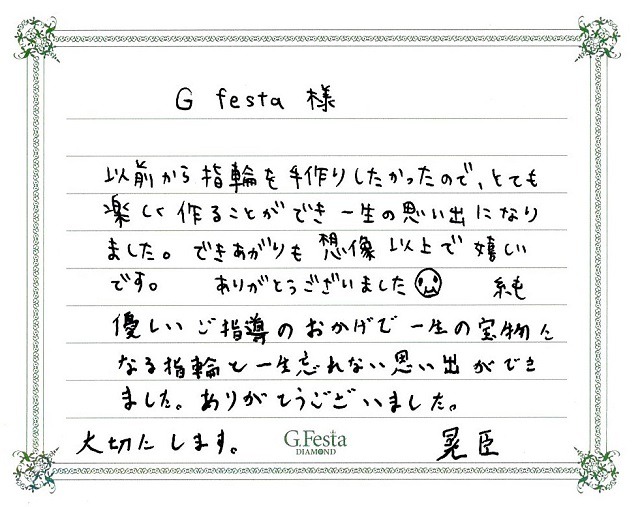 G festa 様
以前から指輪を手作りしたかったので、とても
楽しく作ることができ一生の思い出になり
ました。できあがりも想像以上で嬉しい
です。 ありがとうございました 純
優しいご指導のおかげで一生の宝物に
なる指輪と一生忘れない思い出ができ
ました。ありがとうございました。
大切にします。 G.Festa 晃臣
DIAMOND